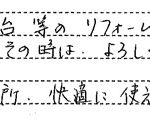 台等の リフォーム
その時は、よろし
所、快適に使え